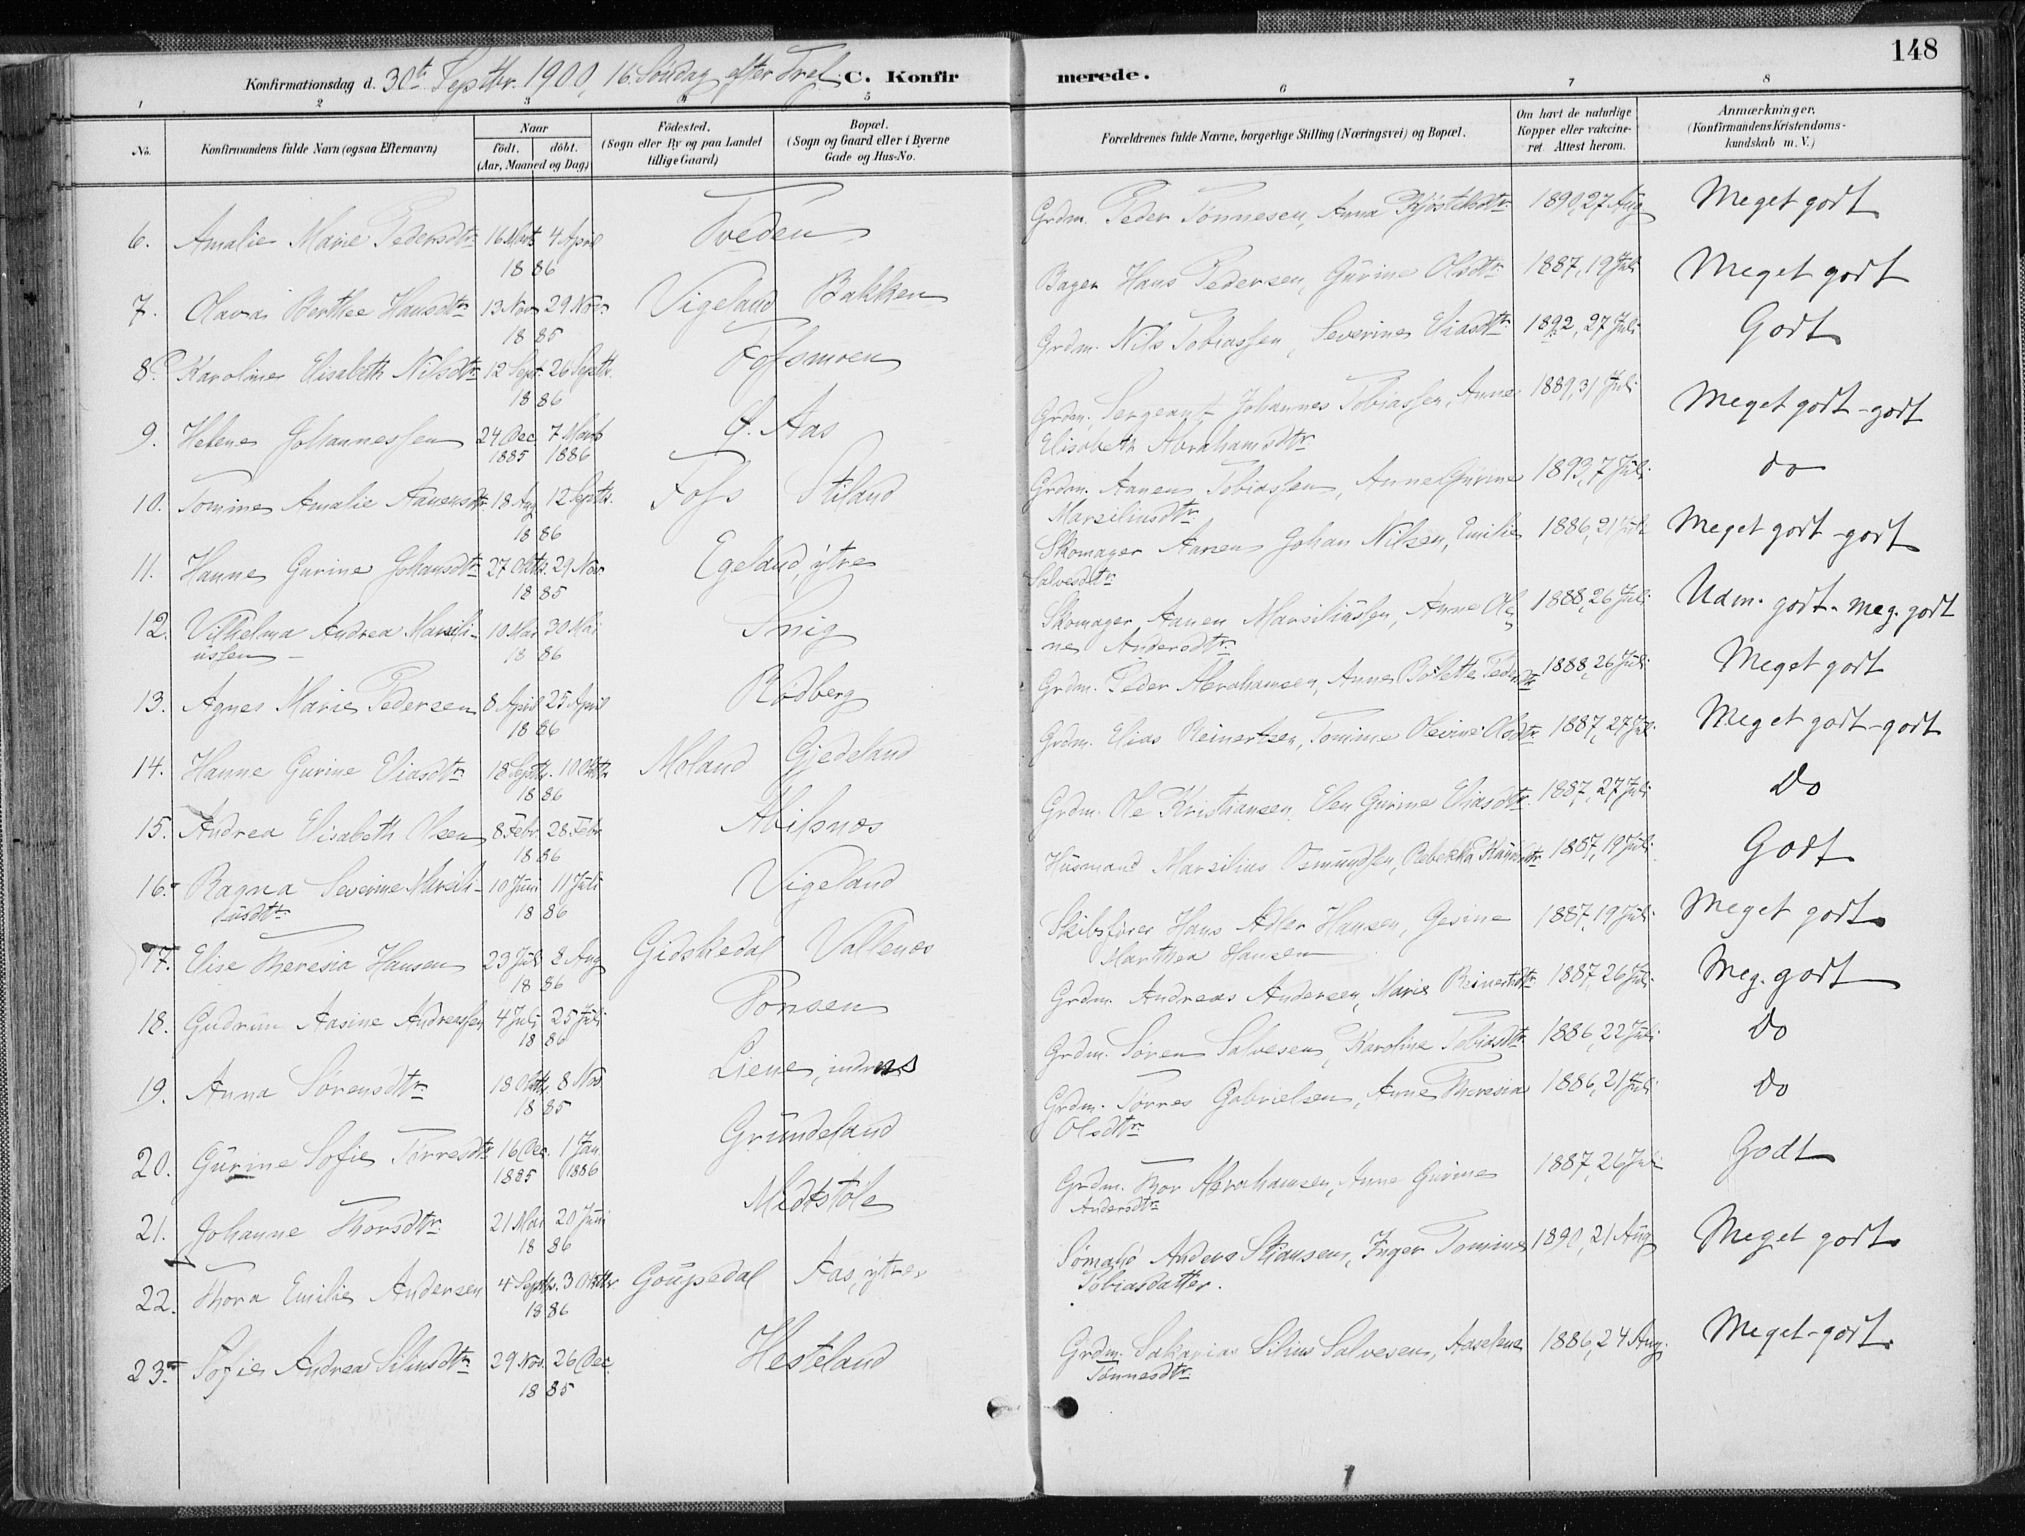 148
Konfirmationsdag d. 30te Septbr. 1900, 16. Søndag efter Tref. C. Konfirmerede.
1 2 3 4 5 6 7 8
No. Konfirmandens fulde Navn (ogsaa Efternavn) Naar födt. döbt. (Aar, Maaned og Dag) Födested. (Sogn eller By og paa Landet tillige Gaard) Bopæl. (Sogn og Gaard eller i Byerne Gade og Hus-No. Forældrenes fulde Navne, borgerlige Stilling (Næringsvei) og Bopæl. Om havt de naturlige Kopper eller vakcineret. Attest herom. Anmærkninger. (Konfirmandens Kristendomskundskab m. V.)
6. Amalie Marie Pedersdtr 16 Marts 4 April 1886 Tveden Grdm. Peder Tönnesen, Anna Kjöstelsdtr 1890, 27 Aug Meget godt
7. Olava Berthe Hansdtr 13 Nov 29 Nov. 1885 Vigeland Bakken Bager Hans Pedersen, Gurine Olsdtr 1887, 19 Juli Meget godt
8. Karoline Elisabeth Nilsdtr 12 Sept. 26 Septbr. 1886 Fossmoen Grdm. Nils Tobiassen, Severine Eliasdtr 1892, 27 Juli Godt
9. Helene Johannessen 24 Dec. 1885 7 Marts 1886 Ö. Aas Grdm. Sergeant Johannes Tobiassen, Anne Elisabeth Abrahamsdtr 1889, 31 Juli Meget godt - godt
10. Tomine Amalie Aanensdtr 18 Aug 12 Septbr. 1886 Foss Stiland Grdm. Aanen Tobiassen, Anne Gurine Marsiliusdtr 1893, 7 Juli do
11. Hanne Gurine Johansdtr 27 Oktb. 29 Nov 1885 Egeland, ytre Skomager Aanen Johan Nilsen, Emilie Salvesdtr 1886, 21 Juli Meget godt - godt
12. Vilhelma Andrea Marsiliussen 10 Mai 30 Mai 1886 Snig Skomager Aanen Marsiliussen, Anne Oline Andersdtr 1888, 26 Juli Udm. godt - meg. godt
13. Agnes Marie Pedersen 8 April 25 April 1886 Rödberg Grdm. Peder Abrahamsen, Anne Bollette Pedersdtr 1888, 26 Juli Meget godt
14. Hanne Gurine Eliasdtr 18 Septbr. 10 Oktbr 1886 Moland Gjedeland Grdm. Elias Reinertsen, Tomine Oleine Olsdtr 1887, 27 Juli Meget godt - godt
15. Andrea Elisabeth Olsen 8 Febr 28 Febr 1886 Abilsnes Grdm. Ole Kristiansen, Elen Gurine Eliasdtr. 1887, 27 Juli Do
16. Ragna Severine Marsiliusdtr 10 Juni 11 Juli 1886 Vigeland Husmand Marsilius Osmundsen, Rebekka 1887, 19 Juli Godt
17. Elise Theresia Hansen 23 Juli 8 Aug 1886 Gidskedal Vallenes Skibsfører Hans Adler Hansen, Gesine Marthea Hansen 1887, 19 Juli Meget godt.
18. Gudrun Aasine Andreassen 4 Juli 25 Juli 1886 Ponsen Grdm. Andreas Andersen, Marie Reinertsdtr 1887, 26 Juli. Meg. godt
19. Anna Sørensdtr. 18 Oktbr 8 Nov 1885 Liene, indre Grdm. Søren Salvesen, Karoline Tobiasdtr 1886, 22 Juli Do
20. Gurine Sofie Tørresdtr 16 Dec. 1885 1 Jan. 1886 Grundeland Grdm. Tørres Gabrielsen, Anne Theresia Olsdtr. 1886, 21 Juli Do
21. Johanne Thorsdtr. 21 Mai 20 Juni 1886 Midtstöle Grdm. Thor Abrahamsen, Anne Gurine Andersdtr 1887, 26 Juli Godt
22. Thora Emilie Andersen 4 Septbr. 3 Oktbr 1886 Goupedal Aas, ytre Sømand Anders Stiansen, Inger Tomine Tobiasdatter. 1890, 21 Aug Meget godt.
23. Sofie Andrea Siliusdtr 29 Nov. 26 Dec. 1885 Hesteland Grdm. Sakarias Silius Salvesen, Aaselene Tønnesdtr. 1886, 24 Aug. Meget-godt.